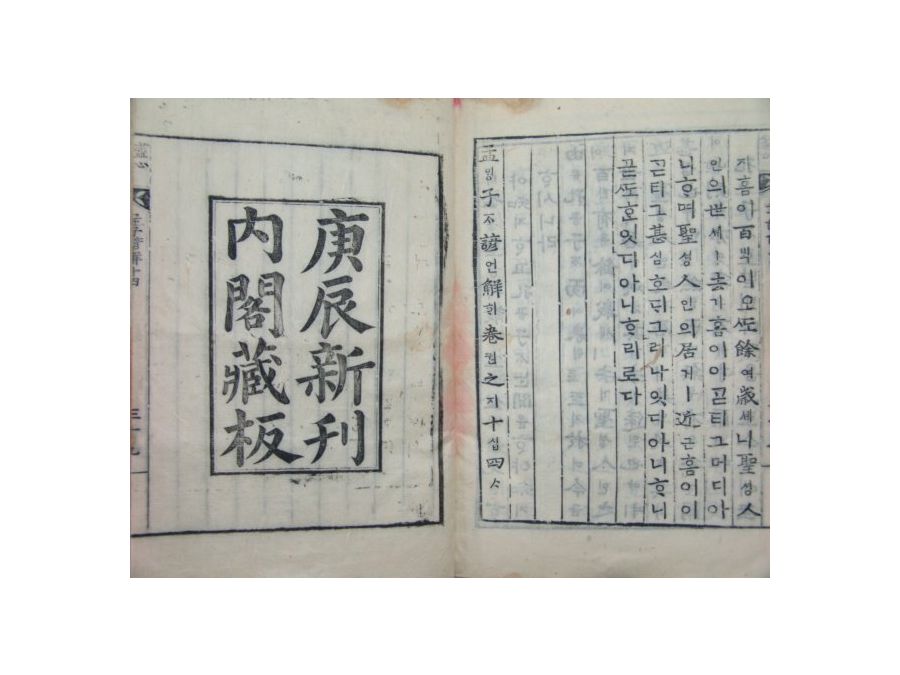 홈이百ᄇᆡᆨ이오ᄯᅩ餘여歲셰니聖셩人
인의世셰ㅣ 홈이이ᄀᆞᆮ티그머디아
니ᄒᆞ며聖셩人인의居거ㅣ近근홈이이
ᄀᆞᆮ티그甚심호ᄃᆡ그러나잇디아니ᄒᆞ니
ᄯᅩ호잇디아니ᄒᆞ리로다
孟ᄆᆡᆼ子ᄌᆞ諺언解ᄒᆡ卷권之지十십四ᄉᆞ
庚辰新刊
內閣藏板